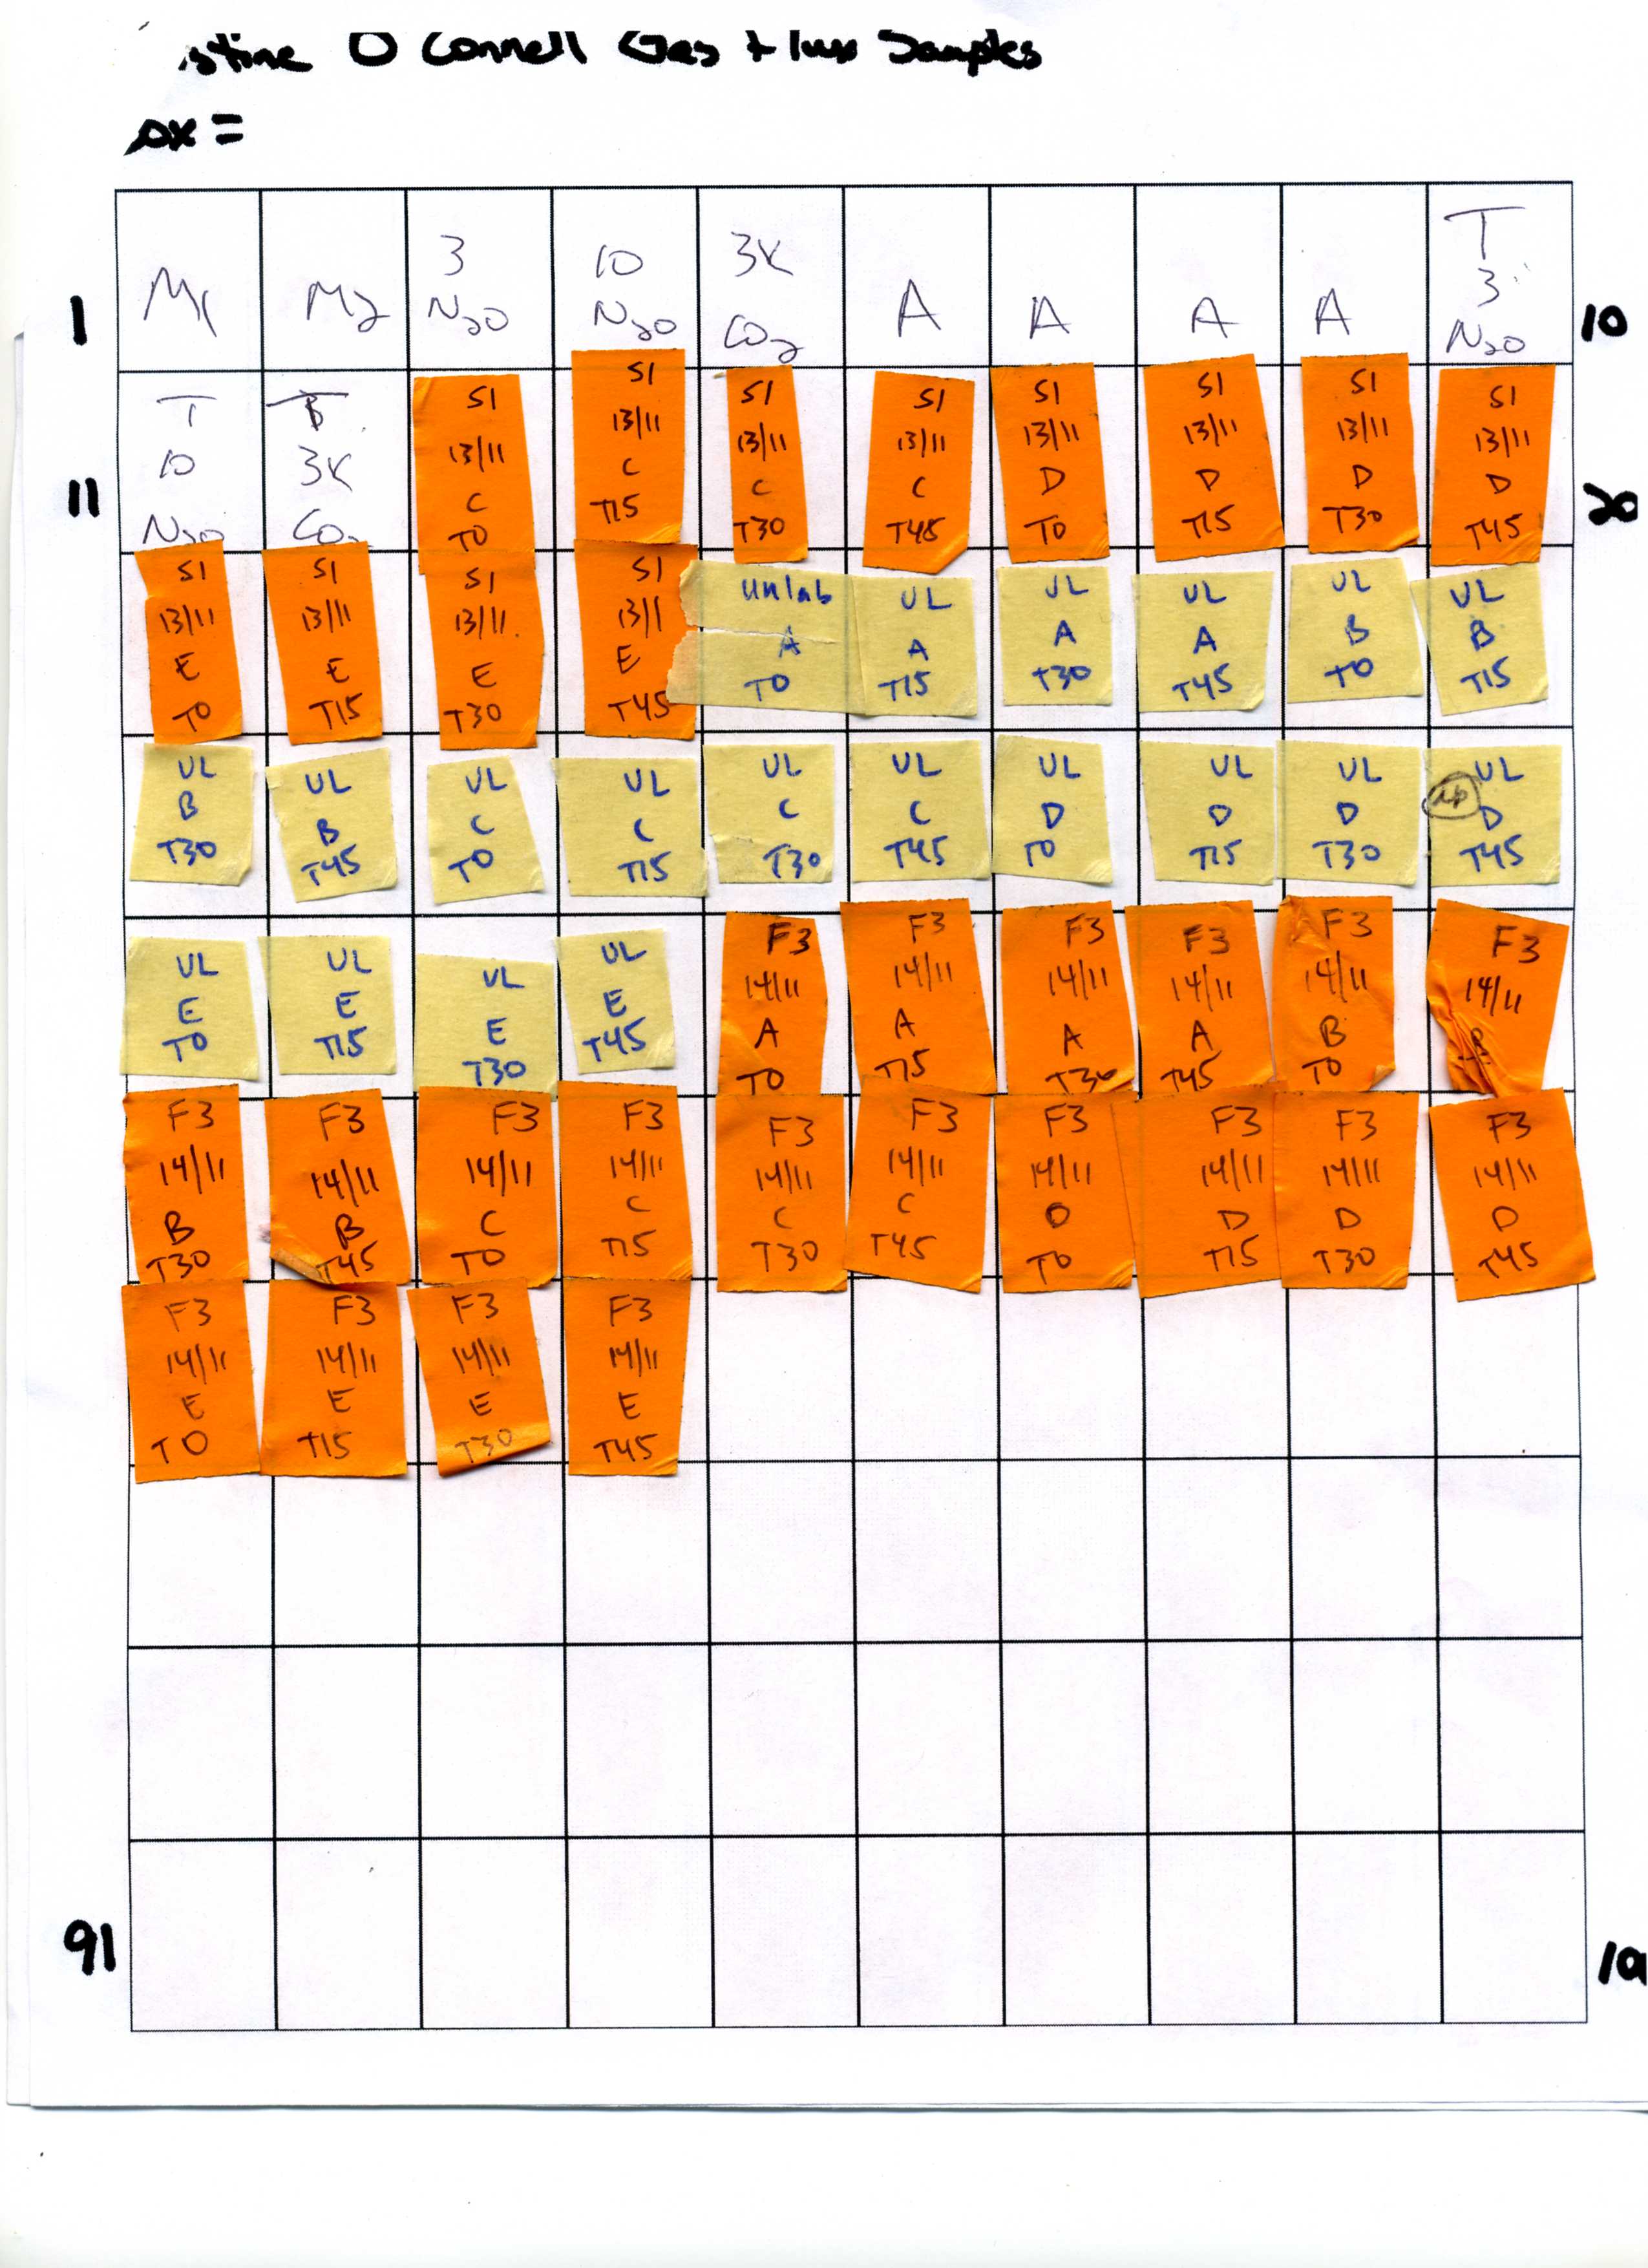 stine O Connell Gas Flux Samples
ox =
1
M1
M2
3
N2O
10
N2O
3K
CO2
A
A
A
A
T
3
N2O
10
11
T
10
N2O
T
3K
CO2
S1
13/11
C
T0
S1
13/11
C
T15
S1
13/11
C
T30
S1
13/11
C
T45
S1
13/11
D
T0
S1
13/11
D
T15
S1
13/11
D
T30
S1
13/11
D
T45
20
S1
13/11
E
T0
S1
13/11
E
T15
S1
13/11
E
T30
S1
13/1
E
T45
Unlab
A
T0
UL
A
T15
UL
A
T30
UL
A
T45
UL
B
T0
UL
B
T15
UL
B
T30
UL
B
T45
UL
C
T0
UL
C
T15
UL
C
T30
UL
C
T45
UL
D
T0
UL
D
T15
UL
D
T30
UL
D
T45
UL
E
T0
UL
E
T15
UL
E
T30
UL
E
T45
F3
14/11
A
T0
F3
14/11
A
T15
F3
14/11
A
T30
F3
14/11
A
T45
F3
14/11
B
T0
F3
14/11
B
F3
14/11
B
T30
F3
14/11
B
T45
F3
14/11
C
T0
F3
14/11
C
T15
F3
14/11
C
T30
F3
14/11
C
T45
F3
14/11
D
T0
F3
14/11
D
T15
F3
14/11
D
T30
F3
14/11
D
T45
F3
14/11
E
T0
F3
14/11
E
T15
F3
14/11
E
T30
F3
14/11
E
T45
91
10